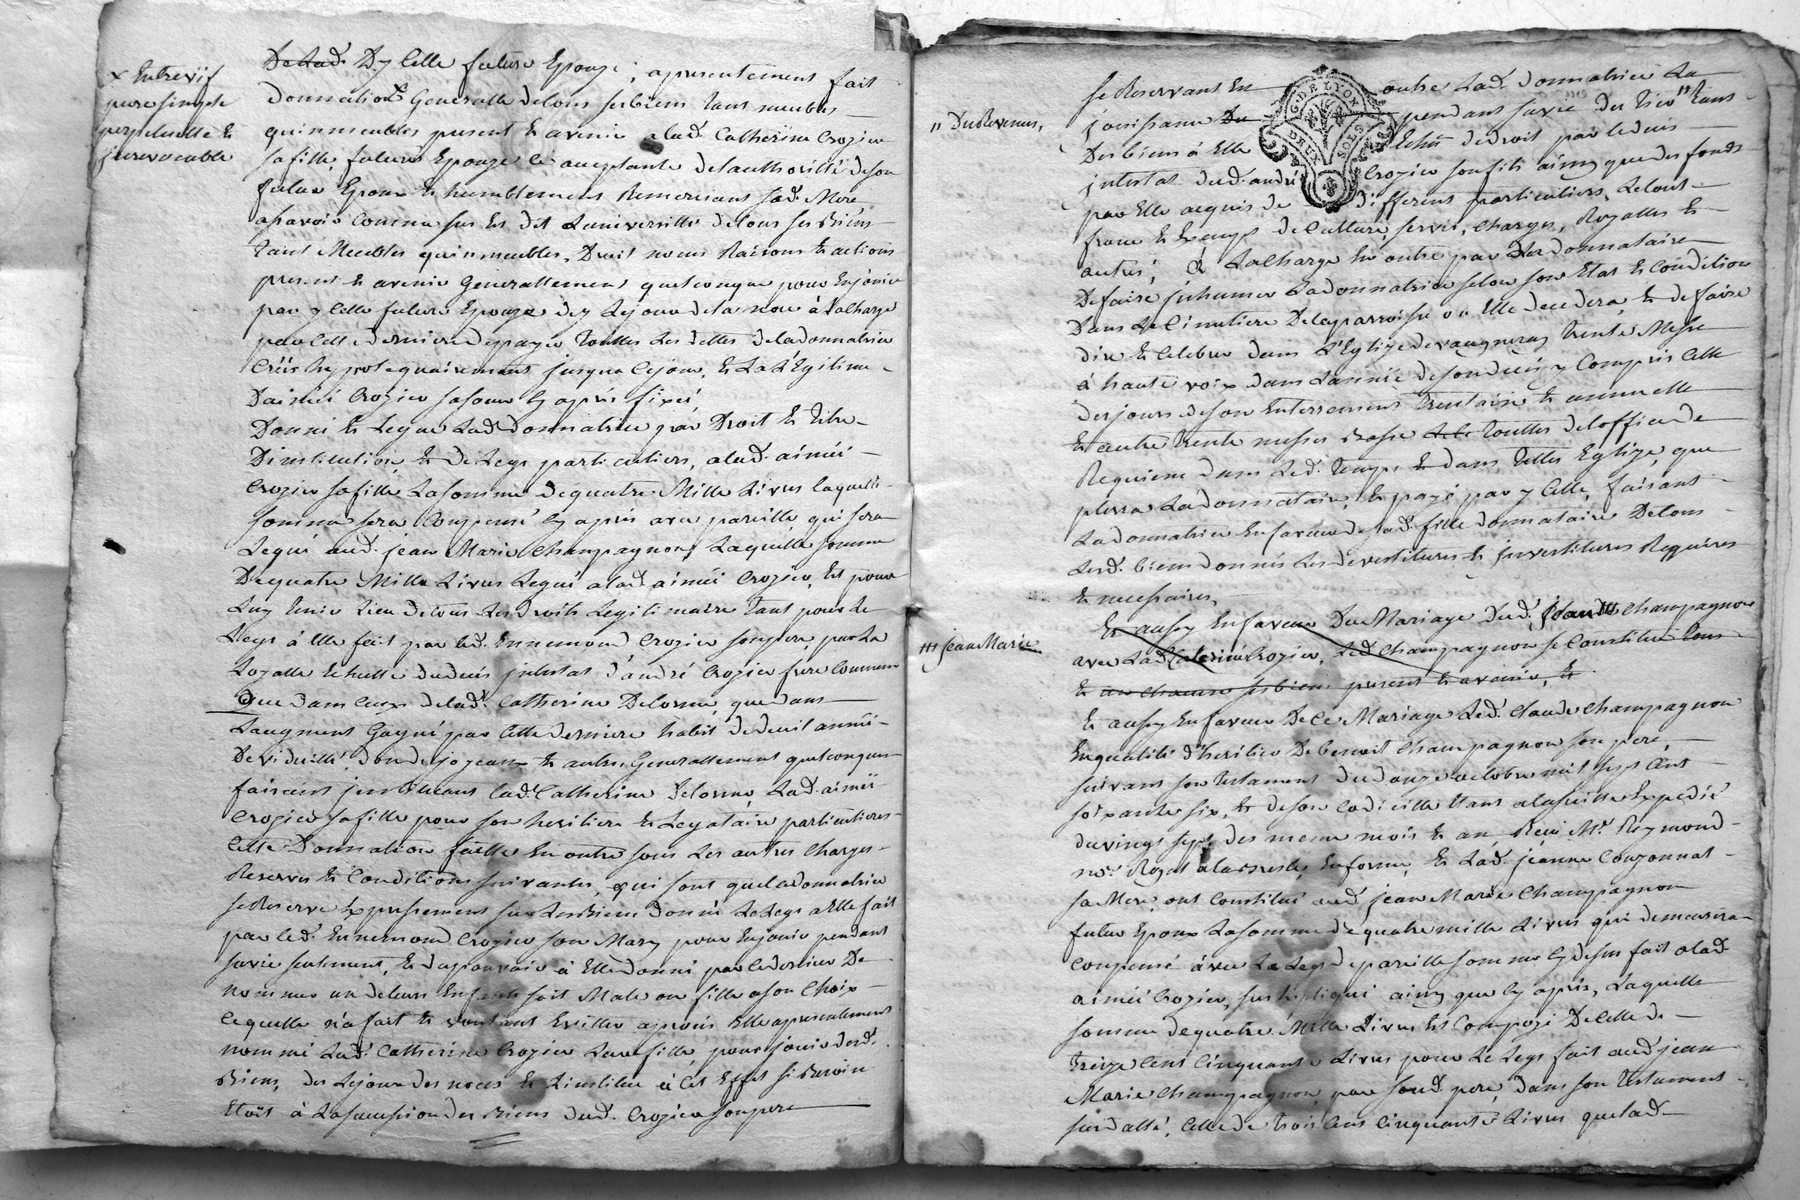 x Entrevif
pure simple
perpetuelle Et
jrrevocable
De Lad. D'ycelle future Epouze, apresentement fait
Donnation Generalle detous ses biens tant meubles
qu'immeubles present Et avenir alad. Catherine Crozier
sa fille future Epouze ce acceptante de l'authorité deson
futur Epoux Et humblement Remerciant sad. Mere
asavoir comme sus Est dit L'université detous ses Biens
tant Meubles qu'immeubles, Droit noms Raisons Et actions
present Et avenir Generallement quelconque pour En jouir
par ycelle future Epouze dez Lejour de la noce à Lacharge
par cette derniere de payer toutes Les dettes deladonnatrice
Créés hypotequairement jusqua Cejour, Et La Legitime
D'aimée Crozier sasœur Cy après fixée,
Donne Et Legue Lad. Donnatrice par Droit Et titre
D'institution Et de Legs particuliers, alad. aimée
Crozier safille Lasomme dequatre Mille Livres laquelle
somme sera Compensé Cy après avec pareille qui sera
Legué aud. jean Marie Champagnon, Laquelle somme
Dequatre Mille Livres Legué alad. aimée Crozier, Est pour
Luy tenir Lieu detous Les droits Legitimaire tant pour Le
Legs à Elle fait par led. Ennemond Crozier son pere, par La
Logatte Echutte dudeces intestat d'andré Crozier frere commun
Que dans ceux delad. Catherine Delorme, que dans
Laugment Gagné par Cette derniere habit dedeuil année
De viduité, don dejoyeaux Et autres Generallement quelconques
faisant instituant Lad. Catherine Delorme, Lad. aimée
Crozier safille pour son heritiere Et Legataire particuliere
Cette Donnation faitte En outre sous Les autres Charges
Reserves Et Conditions suivantes, qui sont que la donnatrice
se Reserve Expressement sur Les Biens donné Le Legs a Elle fait
par led. Ennemond Crozier son Mary pour En jouir pendant
savie seulement, Et dupouvoir à Elle donné par Ce dernier De
nommer un deleurs Enfants soit Male ou fille a son Choix
Cequelle n'a fait Et voulant Eviter aprocès Elle apresentement
nommé Lad. Catherine Crozier Sa fille pour jouir desd.
Biens, des Lejour des noces Et L'institue à Cet Effet si Besoin
Etoit à La succession des Biens dud. Crozier son pere
se Reservant En outre Lad. donnatrice La
jouissance Du pendant savie du tiers " tans
" Des Revenus,
Des biens à Elle Echus dedroit par le deces
intestat dud. andré Crozier son fils ainsy que des fonds
par Elle acquis de differens particuliers, Letout
franc Et Exempt de Culture, servis, charges, Royalles Et
autres; & Lacharge En outre par La donnataire
Defaire jnhumer La donnatrice selon son Etat Et Condition
Dans Le Cimetiere Delaparroisse ou Elle decedera, Et defaire
dire Et Celebrer dans L'Eglise de vaugneray trente Messe
à haute voix dans Lannée de son deces y Compris Celle
des jours de son Enterrement trentaine Et annuelle
Et autre trente messes Basse Le le toutes deloffice de
Requiem dans Led. temps Et dans telles Eglize, que
plaira Ladonnataire, Et payé par ycelle, faisant
La donnatrice En faveur desad. fille donnataire De tous
Lesd. biens donnés Les devestitures Et jnvestitures Requises
Et necessaires,
Et aussy En faveur Du Mariage dud. jean III Champagnon
III jean Marie
avec Lad. Catherine Crozier, Led. Champagnon se Constitue tous
Et un chacun ses biens present Et avenir, Et
Et aussy En faveur De Ce Mariage Led. Claude Champagnon
En qualité d'heritier De benoit Champagnon son pere,
suivant son testament du douze octobre mil sept Cent
soixante six, Et de son Codicille Etant alasuitte Expedié
du vingt sept des meme mois Et an Reçu Me Reymond
nre Royal à la Bresle, En forme, Et Lad. jeanne Couzonnat
sa Mere, ont Constitué aud. jean Marie Champagnon
futur Epoux Lasomme de quatre mille Livres qui demeurera
Compensé avec Le Legs de pareille somme cy dessus fait alad.
aimée Crozier, sus Expliqué ainsy que Cy après, Laquelle
somme de quatre Mille Livres Est Compozé De Celle de
treize Cent Cinquante Livres pour Le Legs fait aud. jean
Marie Champagnon par sond. pere, dans son testament
susdatté, Celle de trois Cens Cinquante Livres que Lad.
G. DE LYON
DEUX SOLS